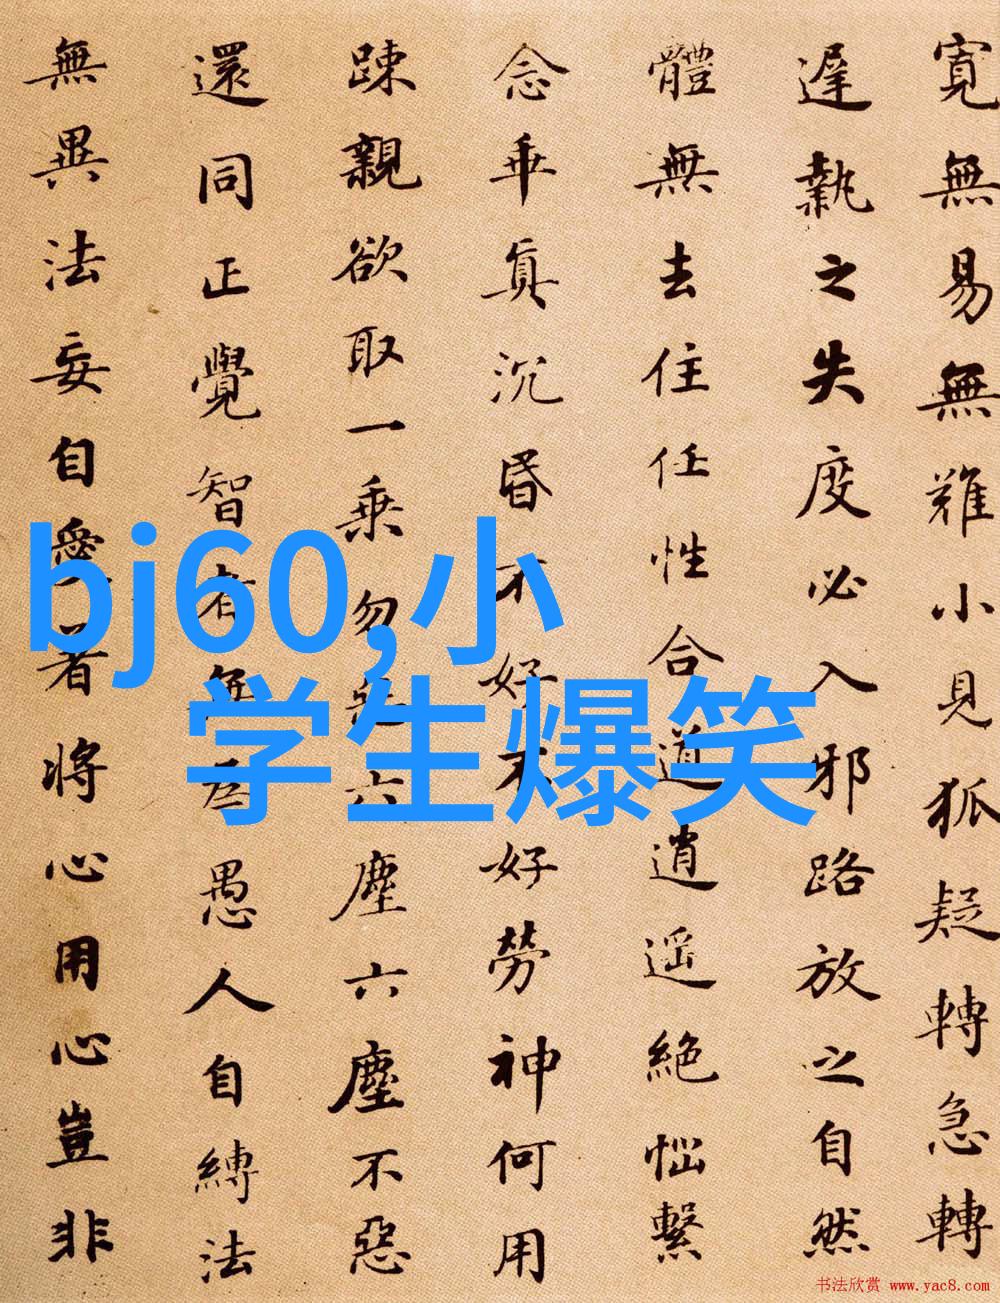 寬無易無難小見狐疑轉急轉
遲執之失度必入邪路放之自然
體無去住任性合道逍遥絶惱繫
念乖真沉昏不好不好勞神何用
踈親欲取一乗勿惡六塵六塵不惡
還同正覺智者無為愚人自縛法
無異法妄自愛著將心用心豈非
bj60,小
学生爆笑
书法欣赏 www.yac8.com